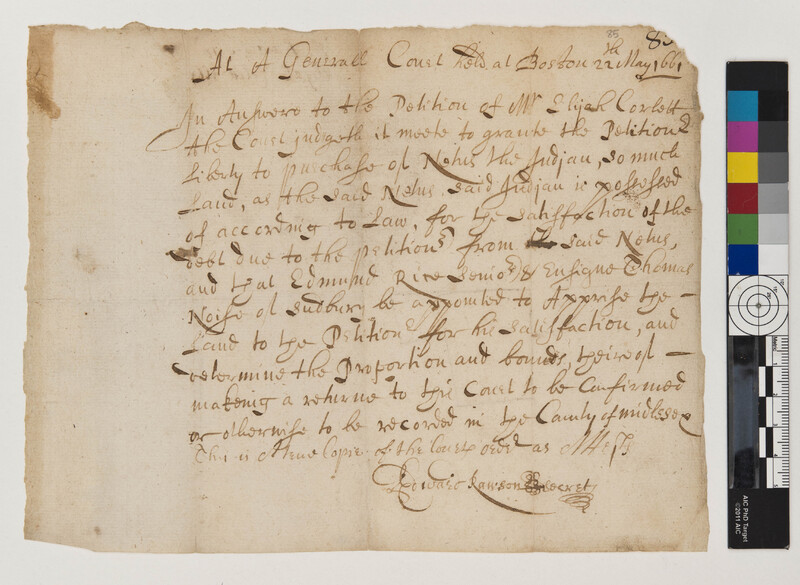 85
85
At A Generall Court held at Boston 22th May 1661
In Answere to the Petition of Mr Elijah Corlett
the Court judgeth it meete to grante the Petitionr
Liberty to purchase of Netus the Indjan, so much
Land, as the said Netus said Indjan is possessed
of according to Law, for the satisfaction of the
debt due to the petitionr from said Netus,
and that Edmund Rice senior & Ensigne Thomas
Noise of Sudbury be appointed to Apprise the —
Land to the Petitionr for his satisfaction, and
determine the Proportion and bounds, theireof —
making a returne to this Court to be Confirmed
or otherwise to be recorded in the County of midlesex
This is A true Copie of the Courts order as Attests
Edward Rawson Secrety
AIC PhD Target
©2011 AIC